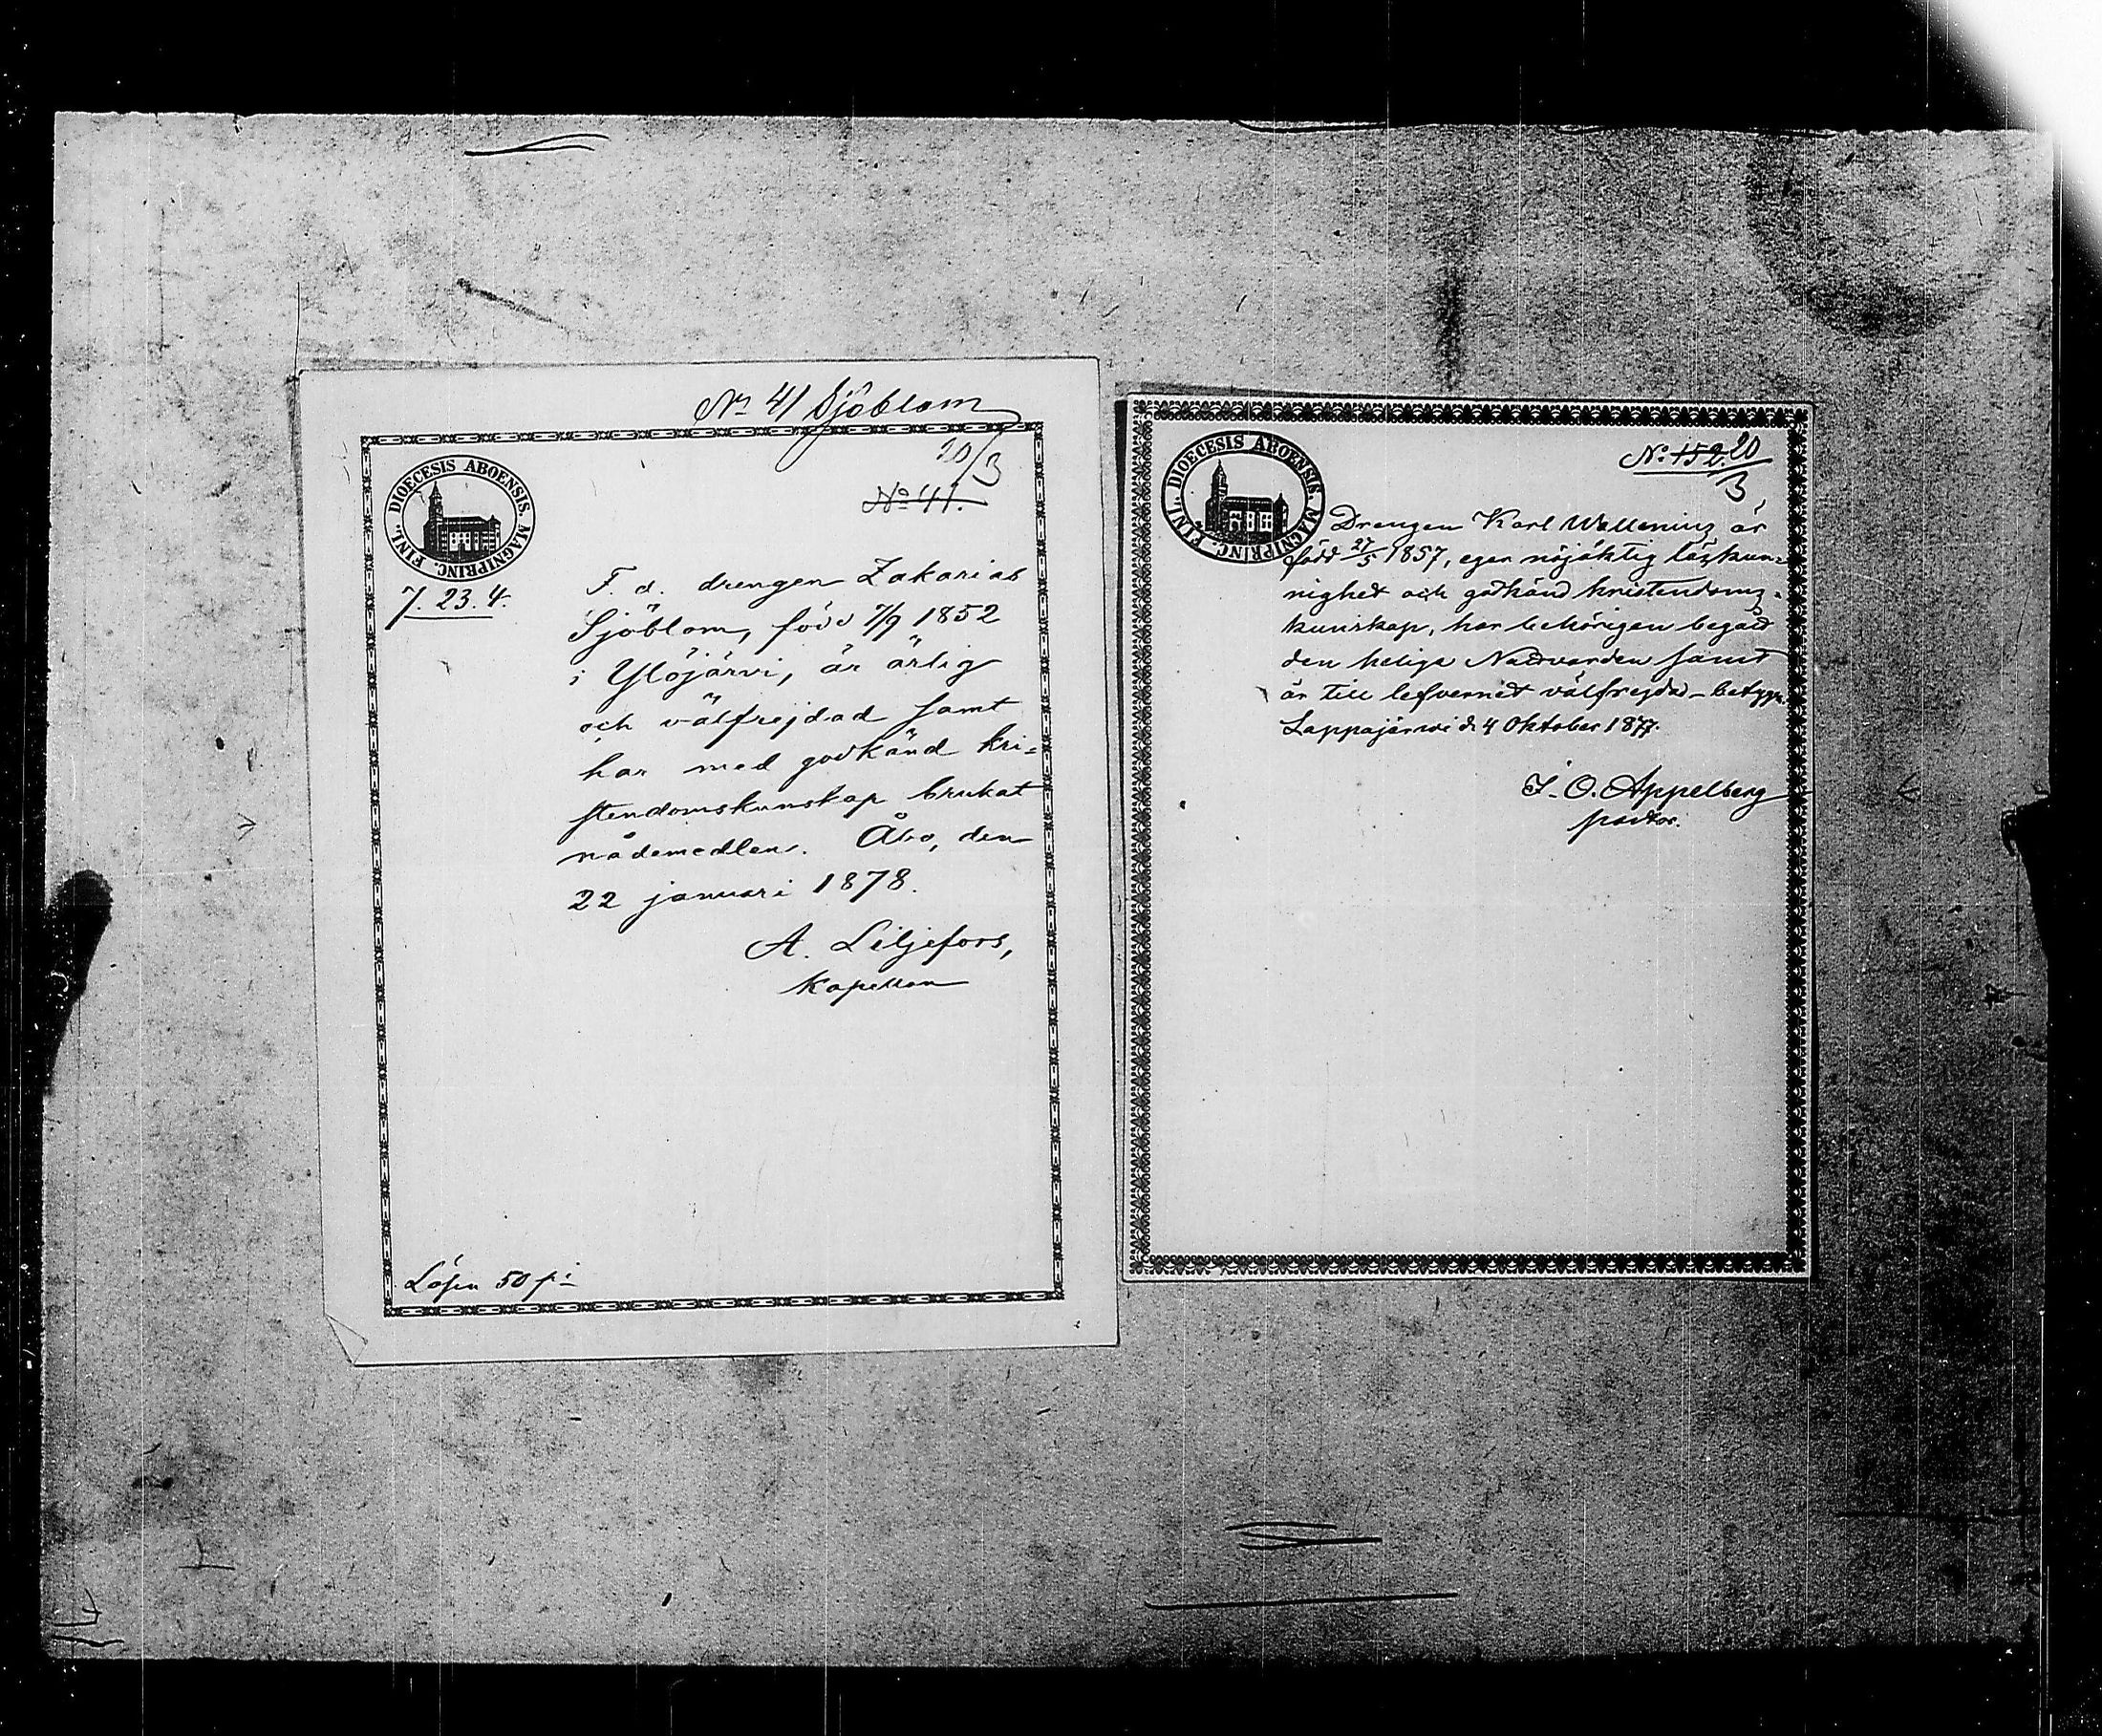 No 41 Sjöblom
20/3
No 41.
DIOECESIS ABOENSIS. MAGNIPRINC. FINL.
7. 23. 4.
F. d. drengen Zakarias
Sjöblom, född 7/9 1852
i Ylöjärvi, är ärlig
och välfrejdad samt
har med godkänd kri=
stendomskunskap brukat
nådemedlen. Åbo, den
22 januari 1878.
A. Liljefors,
Kapellan
Lösen 50 pi
No 152. 20/3
DIOECESIS ABOENSIS. MAGNIPRINC. FINL.
Drengen Karl Wallenius är
född 27/5 1857, eger nöjaktig läskun=
nighet och godkänd kristendoms=
kunskap, har behörigen begått
den heliga Nattvarden samt
är till lefvernet välfrejdad – betygar
Lappajärvi d. 4 Oktober 1877.
I. O. Appelberg
pastor.